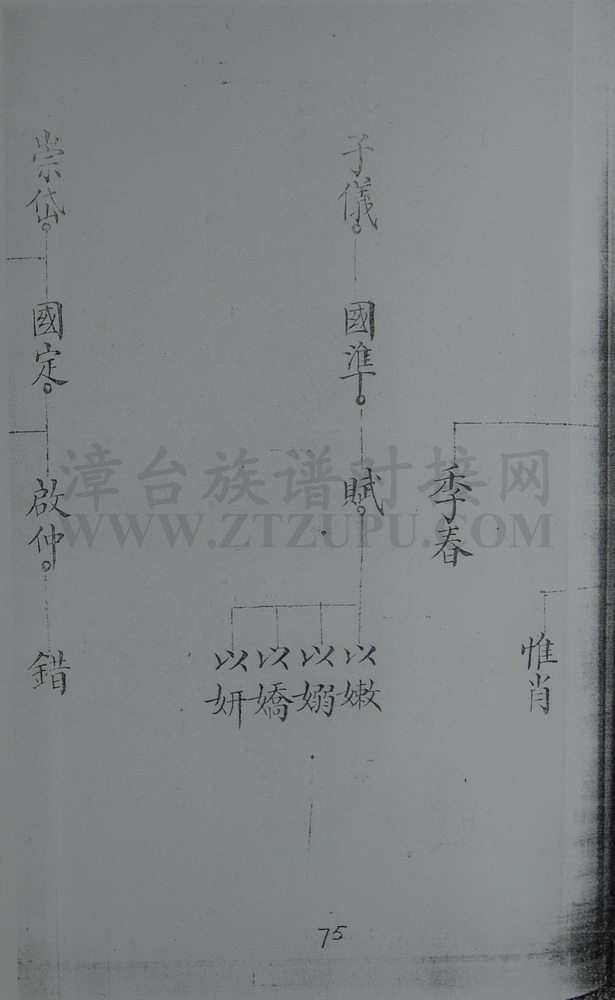 惟肖
季春
子儀
國準
賦
以嫩
以嫋
以嬌
以妍
崇岱
國定
啟仲
錯
漳台族谱对接网
WWW.ZTZUPU.COM
75